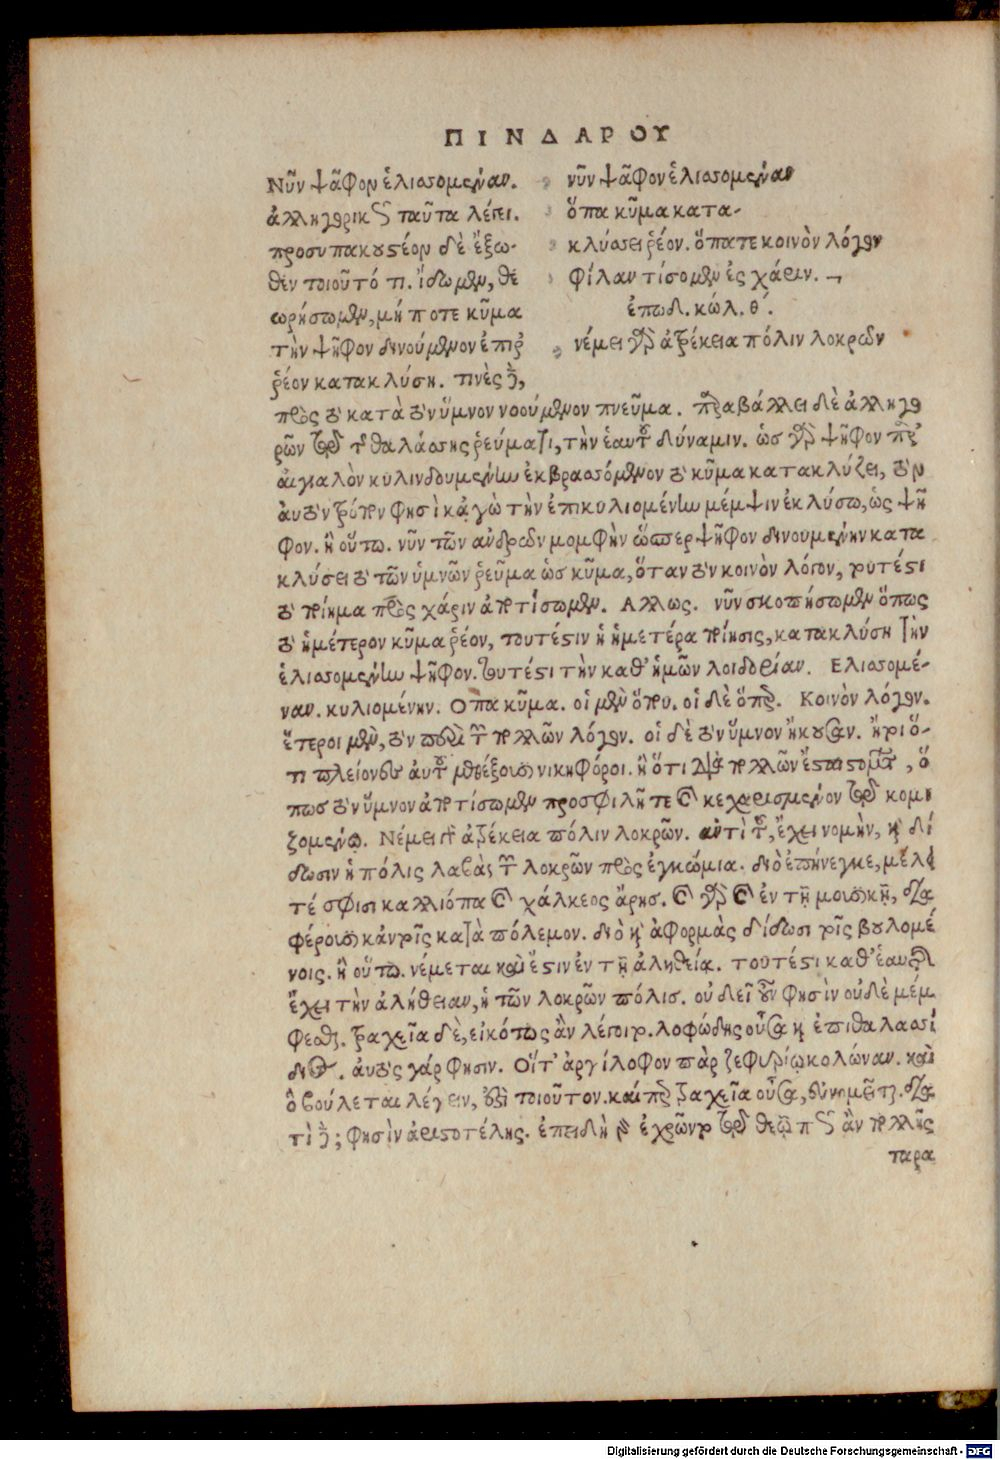 ΠΙΝΔΑΡΟΥ
Νῦν ψᾶφον ἑλισσομέναν.
ἀλληγορικῶς ταῦτα λέγει.
προσυπακουστέον δὲ ἔξω-
θέν τοιοῦτό τι. ἴδωμεν, θε
ωρήσωμεν, μή ποτε κῦμα
τὴν ψῆφον δινούμενον ἐπιῤ
ῥέον κατακλύσῃ. τινὲς δὲ,
νῦν ψᾶφον ἑλισσομέναν
ὅπα κῦμα κατα-
κλύσσει ῥέον. ὅπα τε κοινὸν λόγον
φίλαν τίσομεν ἐς χάριν. ¬
ἐπωδ. κώλ. θ΄.
νέμει γὰρ ἀτρέκεια πόλιν λοκρῶν
πρὸς τὸ κατὰ τὸν ὕμνον νοούμενον πνεῦμα. παραβάλλει δὲ ἀλληγο
ρῶν τῷ τῆς θαλάσσης ῥεύματι, τὴν ἑαυτοῦ δύναμιν. ὡς γὰρ ψῆφον παρ᾽
αἰγιαλὸν κυλινδουμένην ἐκβρασσόμενον τὸ κῦμα κατακλύζει, τὸν
αὐτὸν τρόπον φησὶ κἀγὼ τὴν ἐπικυλιομένην μέμψιν ἐκλύσω, ὡς ψῆ
φον. ἢ οὕτω. νῦν τῶν ἀνδρῶν μομφὴν ὥσπερ ψῆφον δινουμένην κατα
κλύσει τὸ τῶν ὑμνῶν ῥεῦμα ὡς κῦμα, ὅταν τὸν κοινὸν λόγον, τουτέστι
τὸ ποίημα πρὸς χάριν ἀποτίσωμεν. Αλλως. νῦν σκοπήσωμεν ὅπως
τὸ ἡμέτερον κῦμα ῥέον, τουτέστιν ἡ ἡμετέρα ποίησις, κατακλύσῃ τὴν
ἑλισσομένην ψῆφον. τουτέστι τὴν καθ᾽ ἡμῶν λοιδορίαν. Ελισσομέ-
ναν. κυλιομένην. Οπα κῦμα. οἱ μὲν ὅπου. οἱ δὲ ὅπως. Κοινὸν λόγον.
ἕτεροι μὲν, τὸν περὶ τῶν πολλῶν λόγον. οἱ δὲ τὸν ὕμνον ἤκουσαν. ἤτοι ὅ-
τι πλείονες αὐτοῦ μεθέξουσι νικηφόροι. ἢ ὅτι διὰ πολλῶν , ὅ
πως τὸν ὕμνον ἀποτίσωμεν προσφιλῆ τε καὶ κεχαρισμένον τῷ κομι
ζομένῳ. Νέμει γὰρ ἀτρέκεια πόλιν λοκρῶν. ἀντὶ τοῦ, ἔχει νομὴν, καὶ δί
δωσιν ἡ πόλις λαβὰς τῶν λοκρῶν πρὸς ἐγκώμια. διὸ ἐπήνεγκε, μέλει
τέ σφισι καλλιόπα καὶ χάλκεος ἄρης. καὶ γὰρ καὶ ἐν τῇ μουσικῇ, δια
φέρουσι κἀν τοῖς κατὰ πόλεμον. διὸ καὶ ἀφορμὰς δίδωσι τοῖς βουλομέ
νοις. ἢ οὕτω. νέμεται καὶ ἔστιν ἐν τῇ ἀληθείᾳ. τουτέστι καθ᾽ ἑαυτὴν
ἔχει τὴν ἀλήθειαν, ἡ τῶν λοκρῶν πόλις. οὐ δεῖ οὖν φησὶν οὐδὲ μέμ
φεσθαι. τραχεῖα δὲ, εἰκότως ἂν λέγοιτο. λοφώδης οὖσα καὶ ἐπιθαλασσί
διος. αὐτός γάρ φησιν. Οἵτ᾽ ἀργίλοφον πὰρ ζεφυρίῳ κολώναν. καὶ
ὃ βούλεται λέγειν, ἐστὶ τοιοῦτον. καίπερ τραχεῖα οὖσα, εὐνομεῖται. δια
τὶ δὲ; φησὶν ἀριστοτέλης. ἐπειδὴ γὰρ ἐχρῶντο τῷ θεῷ πῶς ἂν πολλῆς
ταρα
Digitalisierung gefördert durch die Deutsche Forschungsgemeinschaft - DFG